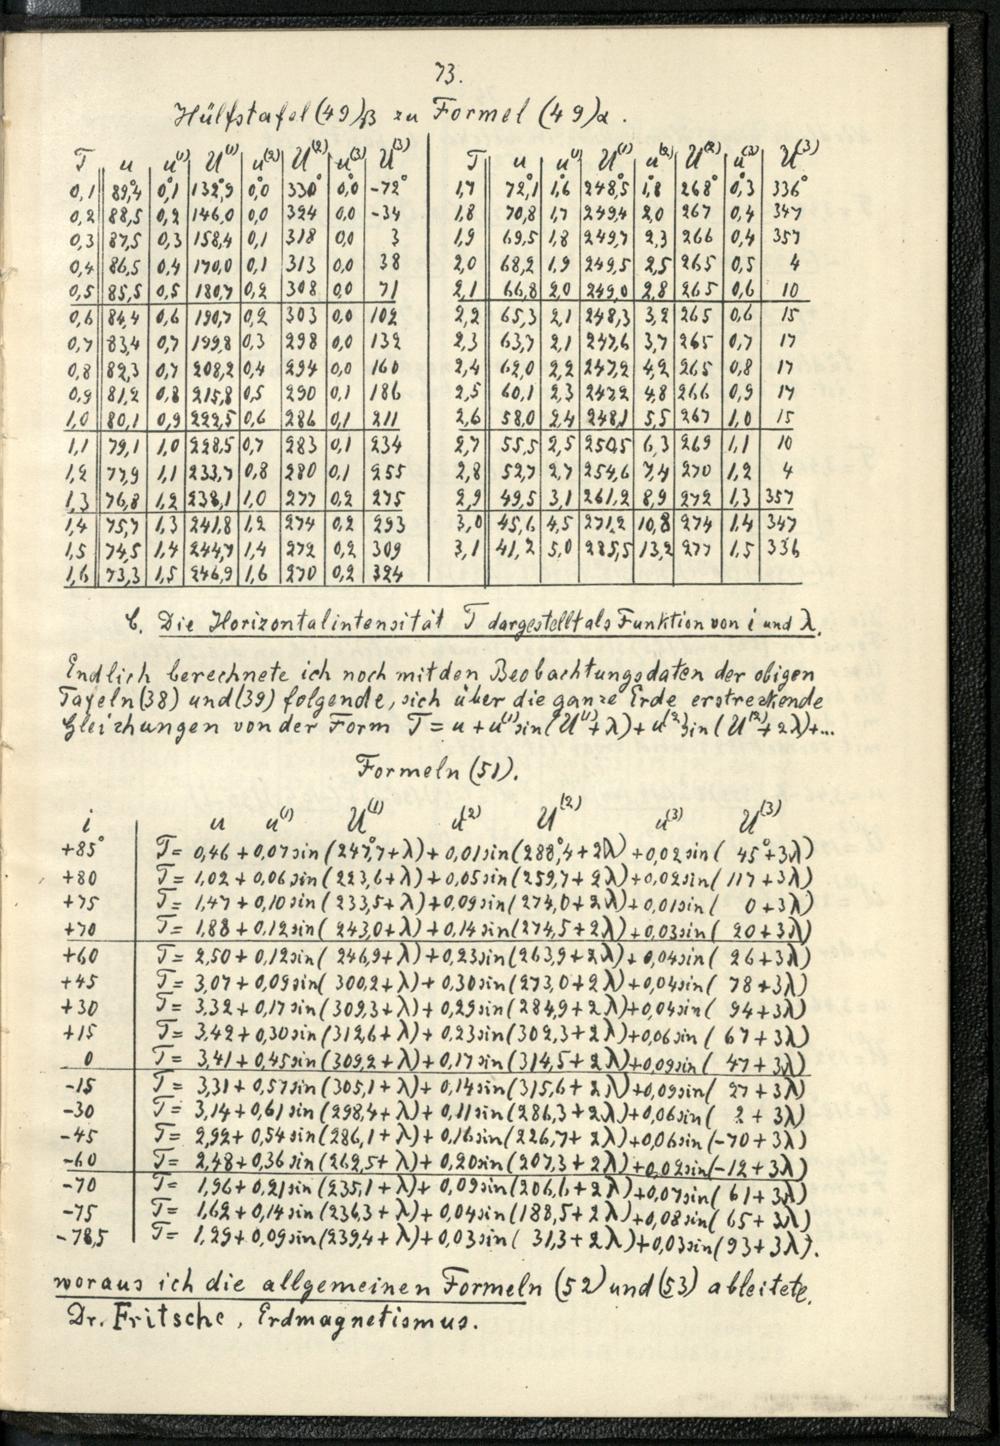 73.
Hülfstafel (49)β zu Formel (49)α.
T | u | u⁽¹⁾ | U⁽¹⁾ | u⁽²⁾ | U⁽²⁾ | u⁽³⁾ | U⁽³⁾ | T | u | u⁽¹⁾ | U⁽¹⁾ | u⁽²⁾ | U⁽²⁾ | u⁽³⁾ | U⁽³⁾
0,1 | 89,°4 | 0,°1 | 132,°9 | 0,°0 | 330° | 0,°0 | -72° | 1,7 | 72,°1 | 1,°6 | 248,°5 | 1,°8 | 268° | 0,°3 | 336°
0,2 | 88,5 | 0,2 | 146,0 | 0,0 | 324 | 0,0 | -34 | 1,8 | 70,8 | 1,7 | 249,4 | 2,0 | 267 | 0,4 | 347
0,3 | 87,5 | 0,3 | 158,4 | 0,1 | 318 | 0,0 | 3 | 1,9 | 69,5 | 1,8 | 249,7 | 2,3 | 266 | 0,4 | 357
0,4 | 86,5 | 0,4 | 170,0 | 0,1 | 313 | 0,0 | 38 | 2,0 | 68,2 | 1,9 | 249,5 | 2,5 | 265 | 0,5 | 4
0,5 | 85,5 | 0,5 | 180,7 | 0,2 | 308 | 0,0 | 71 | 2,1 | 66,8 | 2,0 | 249,0 | 2,8 | 265 | 0,6 | 10
0,6 | 84,4 | 0,6 | 190,7 | 0,2 | 303 | 0,0 | 102 | 2,2 | 65,3 | 2,1 | 248,3 | 3,2 | 265 | 0,6 | 15
0,7 | 83,4 | 0,7 | 199,8 | 0,3 | 298 | 0,0 | 132 | 2,3 | 63,7 | 2,1 | 247,6 | 3,7 | 265 | 0,7 | 17
0,8 | 82,3 | 0,7 | 208,2 | 0,4 | 294 | 0,0 | 160 | 2,4 | 62,0 | 2,2 | 247,2 | 4,2 | 265 | 0,8 | 17
0,9 | 81,2 | 0,8 | 215,8 | 0,5 | 290 | 0,1 | 186 | 2,5 | 60,1 | 2,3 | 247,2 | 4,8 | 266 | 0,9 | 17
1,0 | 80,1 | 0,9 | 222,5 | 0,6 | 286 | 0,1 | 211 | 2,6 | 58,0 | 2,4 | 248,1 | 5,5 | 267 | 1,0 | 15
1,1 | 79,1 | 1,0 | 228,5 | 0,7 | 283 | 0,1 | 234 | 2,7 | 55,5 | 2,5 | 250,5 | 6,3 | 269 | 1,1 | 10
1,2 | 77,9 | 1,1 | 233,7 | 0,8 | 280 | 0,1 | 255 | 2,8 | 52,7 | 2,7 | 254,6 | 7,4 | 270 | 1,2 | 4
1,3 | 76,8 | 1,2 | 238,1 | 1,0 | 277 | 0,2 | 275 | 2,9 | 49,5 | 3,1 | 261,2 | 8,9 | 272 | 1,3 | 357
1,4 | 75,7 | 1,3 | 241,8 | 1,2 | 274 | 0,2 | 293 | 3,0 | 45,6 | 4,5 | 271,2 | 10,8 | 274 | 1,4 | 347
1,5 | 74,5 | 1,4 | 244,7 | 1,4 | 272 | 0,2 | 309 | 3,1 | 41,2 | 5,0 | 285,5 | 13,2 | 277 | 1,5 | 336
1,6 | 73,3 | 1,5 | 246,9 | 1,6 | 270 | 0,2 | 324
C. Die Horizontalintensität T dargestellt als Funktion von i und λ.
Endlich berechnete ich noch mit den Beobachtungsdaten der obigen
Tafeln (38) und (39) folgende, sich über die ganze Erde erstreckende
Gleichungen von der Form T = u + u⁽¹⁾sin(U⁽¹⁾+λ) + u⁽²⁾sin(U⁽²⁾+2λ)+...
Formeln (51).
i | u u⁽¹⁾ U⁽¹⁾ u⁽²⁾ U⁽²⁾ u⁽³⁾ U⁽³⁾
+85° | T = 0,46 + 0,07 sin (247,°7+λ) + 0,01 sin (288,°4+2λ) + 0,02 sin ( 45°+3λ)
+80 | T = 1,02 + 0,06 sin (223,6+λ) + 0,05 sin (259,7+2λ) + 0,02 sin ( 117+3λ)
+75 | T = 1,47 + 0,10 sin (233,5+λ) + 0,09 sin (274,0+2λ) + 0,01 sin ( 0+3λ)
+70 | T = 1,88 + 0,12 sin ( 243,0+λ) + 0,14 sin (274,5+2λ) + 0,03 sin ( 20+3λ)
+60 | T = 2,50 + 0,12 sin ( 246,9+λ) + 0,23 sin (263,9+2λ) + 0,04 sin ( 26+3λ)
+45 | T = 3,07 + 0,09 sin ( 300,2+λ) + 0,30 sin (273,0+2λ) + 0,04 sin ( 78+3λ)
+30 | T = 3,32 + 0,17 sin (309,3+λ) + 0,29 sin (284,9+2λ) + 0,04 sin ( 94+3λ)
+15 | T = 3,42 + 0,30 sin (312,6+λ) + 0,23 sin (302,3+2λ) + 0,06 sin ( 67+3λ)
0 | T = 3,41 + 0,45 sin (309,2+λ) + 0,17 sin (314,5+2λ) + 0,09 sin ( 47+3λ)
-15 | T = 3,31 + 0,57 sin (305,1+λ) + 0,14 sin (315,6+2λ) + 0,09 sin ( 27+3λ)
-30 | T = 3,14 + 0,61 sin (298,4+λ) + 0,11 sin (286,3+2λ) + 0,06 sin ( 2+3λ)
-45 | T = 2,92 + 0,54 sin (286,1+λ) + 0,16 sin (226,7+2λ) + 0,06 sin (-70+3λ)
-60 | T = 2,48 + 0,36 sin (262,5+λ) + 0,20 sin (207,3+2λ) + 0,02 sin (-12+3λ)
-70 | T = 1,96 + 0,21 sin (235,1+λ) + 0,09 sin (206,6+2λ) + 0,07 sin ( 61+3λ)
-75 | T = 1,62 + 0,14 sin (236,3+λ) + 0,04 sin (188,5+2λ) + 0,08 sin ( 65+3λ)
-78,5 | T = 1,29 + 0,09 sin (239,4+λ) + 0,03 sin ( 31,3+2λ) + 0,03 sin (93+3λ).
woraus ich die allgemeinen Formeln (52) und (53) ableitete.
Dr. Fritsche, Erdmagnetismus.